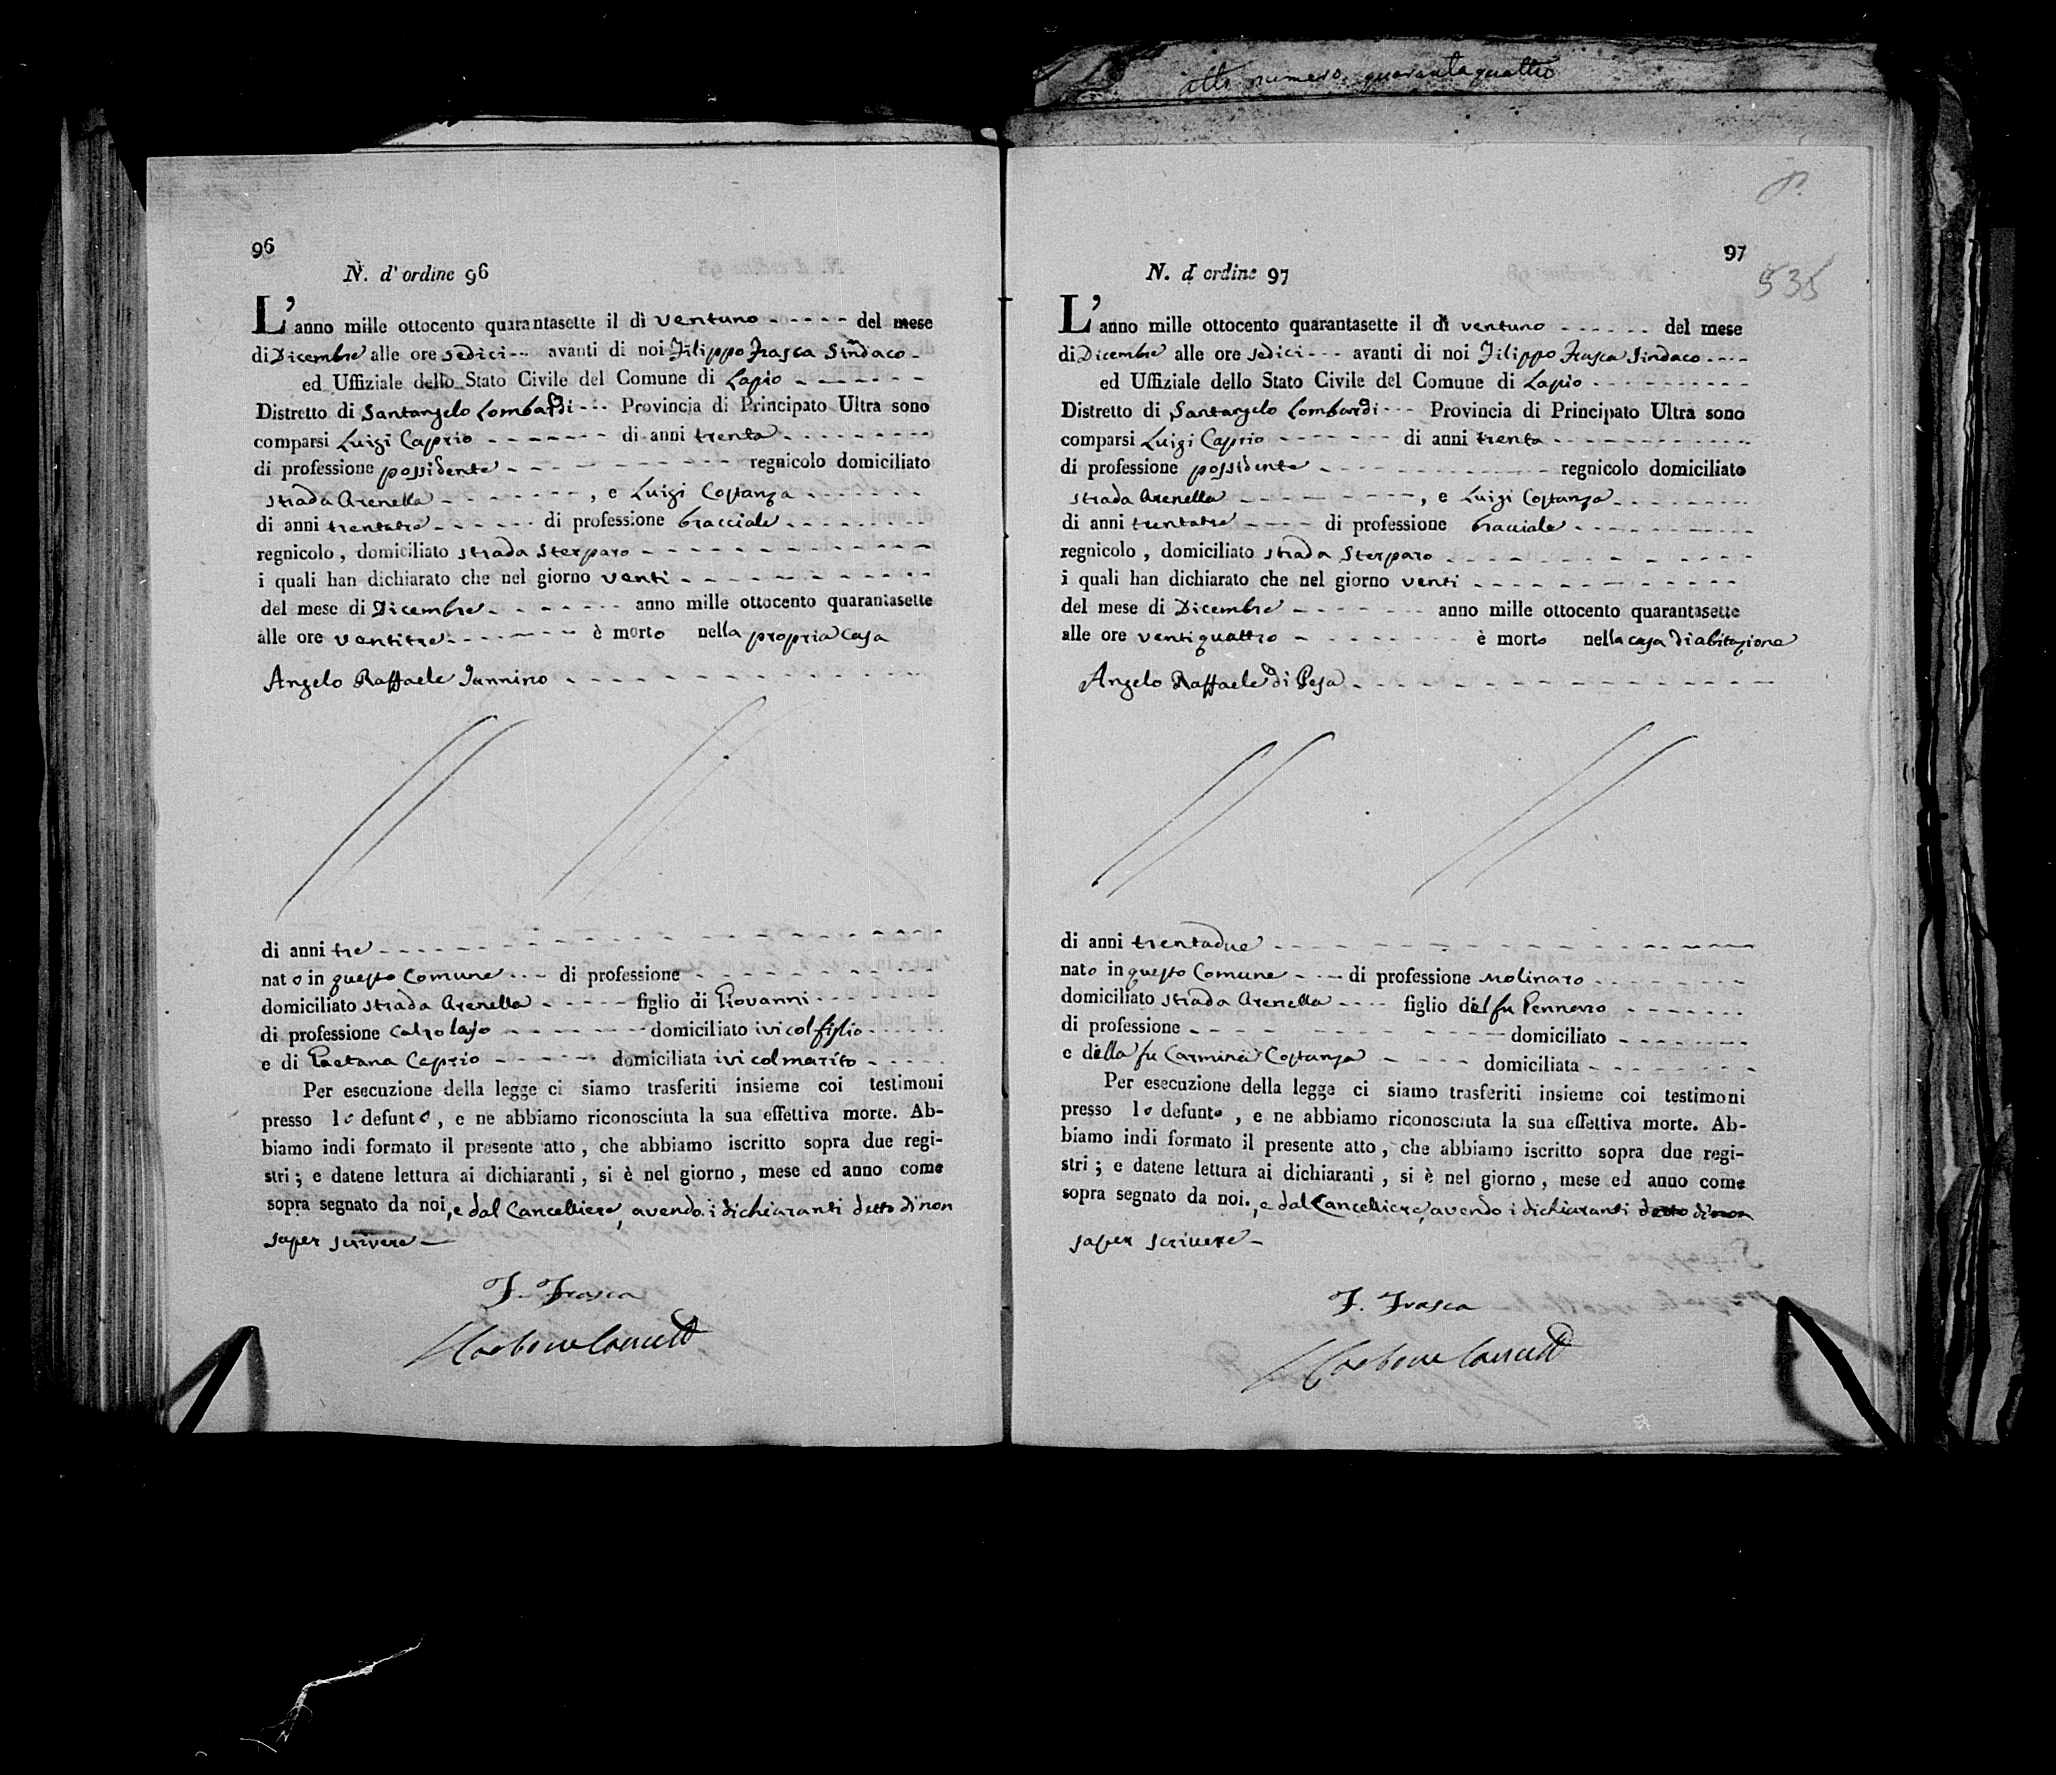 atto numero quarantaquattro
96
N. d'ordine 96
L'anno mille ottocento quarantasette il dì ventuno - - - - - del mese
di Dicembre alle ore sedici - - - avanti di noi Filippo Frasca Sindaco -
ed Uffiziale dello Stato Civile del Comune di Lapio - - - - - - -
Distretto di Santangelo Lombardi - - - Provincia di Principato Ultra sono
comparsi Luigi Caprio - - - - - - - di anni trenta - - - - - - - - -
di professione possidente - - - - - - - - - - regnicolo domiciliato
strada Arenella - - - - - - - - , e Luigi Costanza - - - - - -
di anni trentatre - - - - - - di professione bracciale - - - - - - - -
regnicolo, domiciliato strada Sterparo - - - - - - - - - - - -
i quali han dichiarato che nel giorno venti - - - - - - - - - - -
del mese di Dicembre - - - - - - - anno mille ottocento quarantasette
alle ore ventitre - - - - - - - è morto nella propria casa
Angelo Raffaele Iannino - - - - - - - - - - - - - -
di anni tre - - - - - - - - - - - - - - - - - - - -
nato in questo Comune - - - di professione - - - - - - - - - -
domiciliato strada Arenella - - - - - figlio di Giovanni - - - - - -
di professione Calzolajo - - - - - - - domiciliato ivi col figlio - - - - -
e di Gaetana Caprio - - - - - - domiciliata ivi col marito - - - - -
Per esecuzione della legge ci siamo trasferiti insieme coi testimoni
presso lo defunto, e ne abbiamo riconosciuta la sua effettiva morte. Ab-
biamo indi formato il presente atto, che abbiamo iscritto sopra due regi-
stri; e datene lettura ai dichiaranti, si è nel giorno, mese ed anno come
sopra segnato da noi, e dal Cancelliere, avendo i dichiaranti detto di non
saper scrivere -
F. Frasca
97
535
N. d'ordine 97
L'anno mille ottocento quarantasette il dì ventuno - - - - - - del mese
di Dicembre alle ore sedici - - - avanti di noi Filippo Frasca Sindaco - - - -
ed Uffiziale dello Stato Civile del Comune di Lapio - - - - - - - - - -
Distretto di Santangelo Lombardi - - - Provincia di Principato Ultra sono
comparsi Luigi Caprio - - - - - - - di anni trenta - - - - - - - - - - -
di professione possidente - - - - - - - - - - - - regnicolo domiciliato
strada Arenella - - - - - - - - - , e Luigi Costanza - - - - - - - -
di anni trentatre - - - - di professione bracciale - - - - - - - - - -
regnicolo, domiciliato strada Sterparo - - - - - - - - - - - -
i quali han dichiarato che nel giorno venti - - - - - - - - - - - -
del mese di Dicembre - - - - - - - anno mille ottocento quarantasette
alle ore ventiquattro - - - - - - - - è morto nella casa di abitazione
Angelo Raffaele di Pesa - - - - - - - - - - - - - - - - -
di anni trentadue - - - - - - - - - - - - - - - - - - -
nato in questo Comune - - - di professione Molinaro - - - - - - - -
domiciliato strada Arenella - - - - figlio del fu Gennaro - - - - - - -
di professione - - - - - - - - - - - - domiciliato - - - - - - -
e della fu Carmina Costanza - - - - domiciliata - - - - - - - -
Per esecuzione della legge ci siamo trasferiti insieme coi testimoni
presso lo defunto, e ne abbiamo riconosciuta la sua effettiva morte. Ab-
biamo indi formato il presente atto, che abbiamo iscritto sopra due regi-
stri; e datene lettura ai dichiaranti, si è nel giorno, mese ed anno come
sopra segnato da noi., e dal Cancelliere, avendo i dichiaranti detto di non
saper scrivere -
F. Frasca